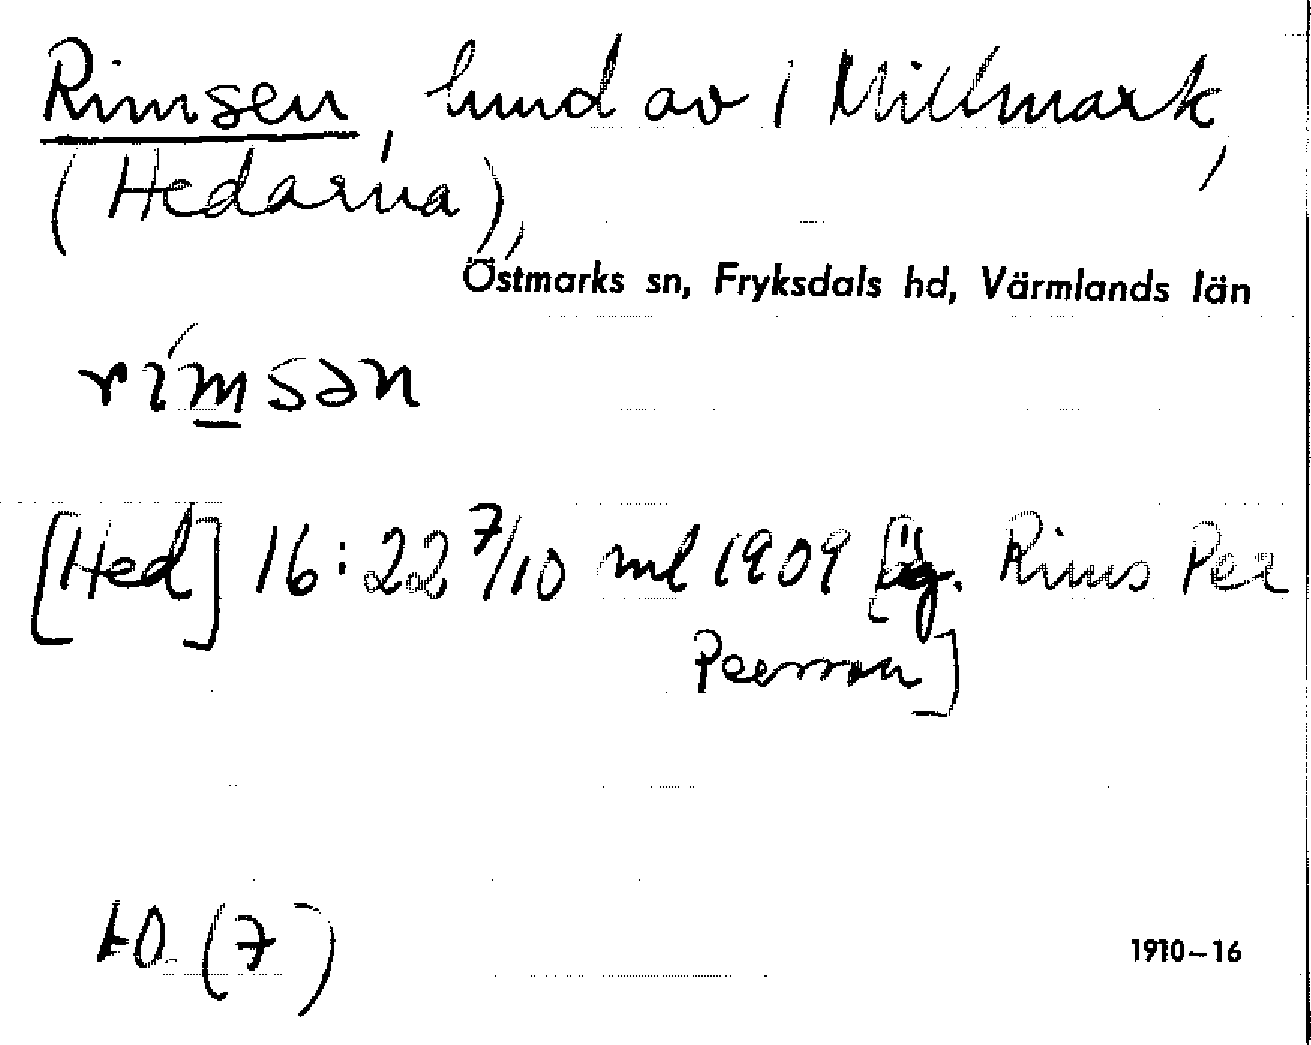 Rimsen, lund av i Millmark,
(Hedarna),
Östmarks sn, Fryksdals hd, Värmlands län
rím̲sən
[Hed] 16:22 7/10 ml 1909 [äg. Rims Per
Persson]
(7)
1910–16